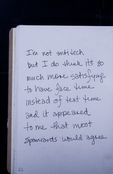 I'm not antitech
but I do think it's so
much more satisfying
to have face time
instead of text time
and it appeared
to me that most
Spaniards would agree.